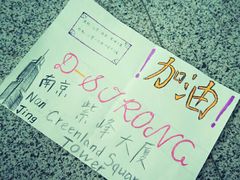 !加油!
D-STRONG
南京 紫峰大厦
Nan Jing
Greenland Square
Tower